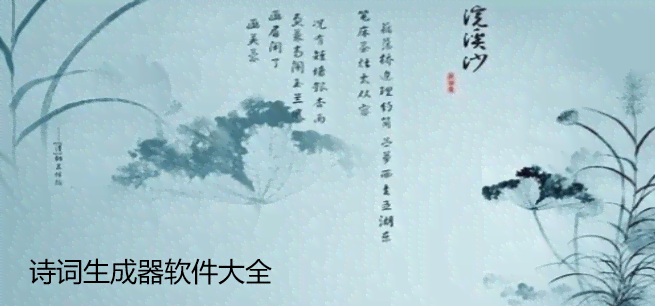 浣溪沙
藕荡桥边理钓筒 苎萝西去五湖东
笔床茶灶太从容
况有短墙银杏雨
更兼高阁玉兰风
画眉闲了
画芙蓉
——[清]纳兰性德
诗词生成器软件大全